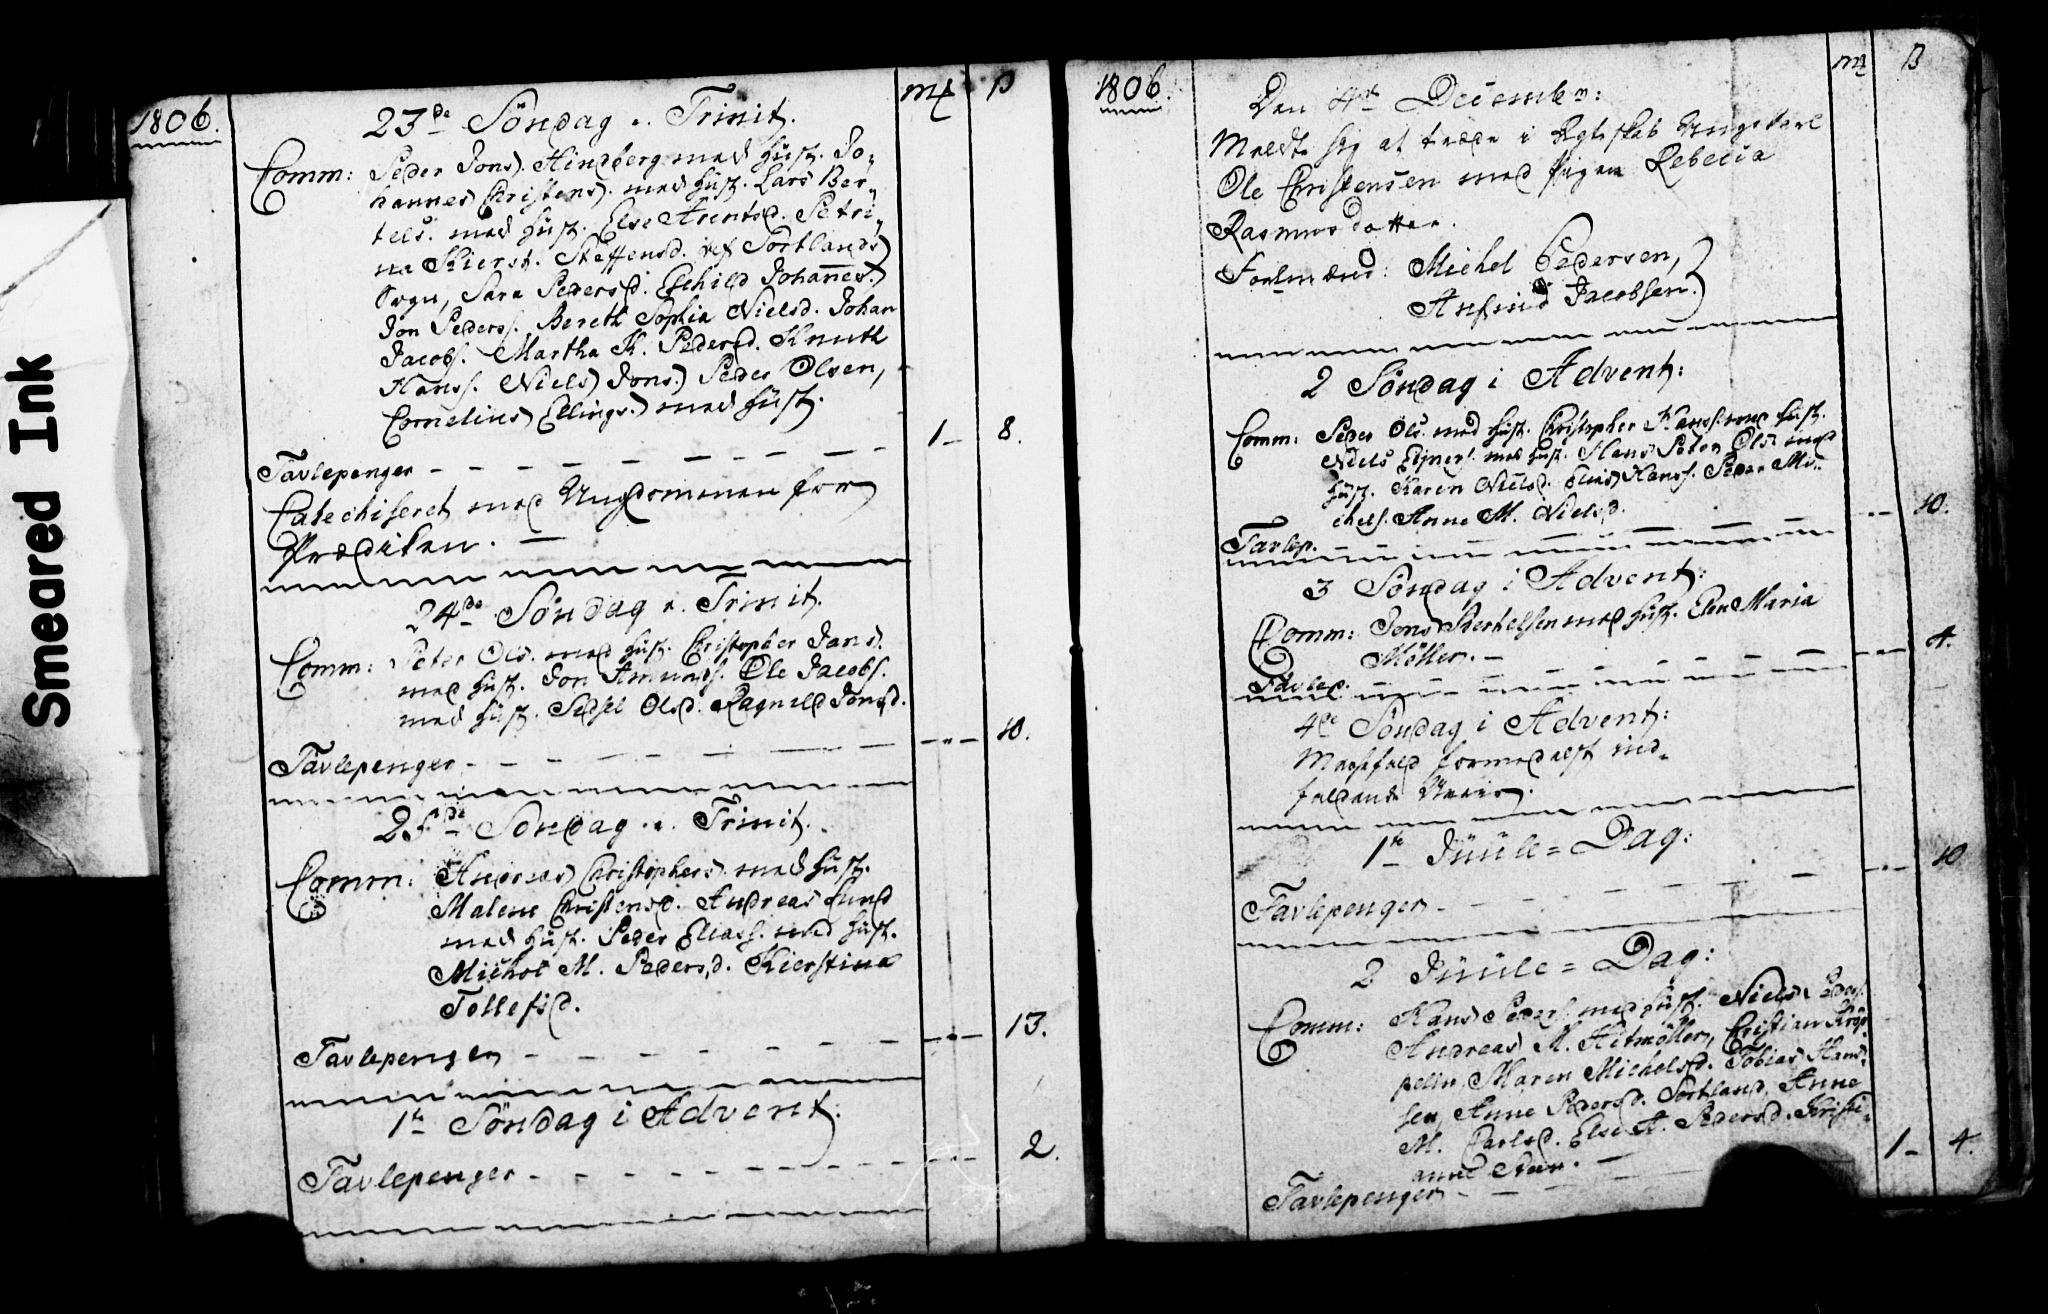 Smeared Ink
1806.
m𝓀 ß
23de Söndag e. Trinit.
Comm: Peder Jons. Hindberg med Hust. Jo-
hannes Christens. med Hust. Lars Ber-
tels. med Hust. Else Arentsd. Petri-
na Kierst. Steffensd. af Sortlands
Sogn, Sara Pedersd. Eschild Johannes.
Jon Peders. Bereth Sophia Nielsd. Johan
Jacobs. Martha K. Pedersd. Knuth
Hans. Niels Jons. Peder Olsen,
Cornelius Ellings. med Hust.
Tavlepenger - - - - 1 - 8.
Catechiseret med Ungdommen for
Prædiken. -
24de Söndag e. Trinit.
Comm: Peter Ols. med Hust. Christopher Jans.
med Hust. Jon Amunds. Ole Jacobs.
med Hust. Sidsel Olsd. Ragnild Jonsd.
Tavlepenger - - - - 10.
25de Söndag e. Trinit.
Comm: Andreas Christophers. med Hust.
Malene Christensd. Andreas Lund
med Hust. Peder Elias. med Hust.
Michol M. Pedersd. Kierstina
Tollefsd.
Tavlepenger - - - - 13.
1te Söndag i Advent:
Tavlepenger - - - - 2.
1806.
m𝓀 ß
Den 4de Decembr:
Meldte sig at træde i Ægteskab Ungekarl
Ole Christensen med Pigen Rebecca
Rasmusdatter.
Forlmænd: Michel Pedersen,
Anfind Jacobsen.
2 Söndag i Advent:
Comm: Peder Ols. med Hust. Christopher Hans. med Hust.
Niels Ejners. med Hust. Hans Peter Ols. med
Hust. Karen Nielsd. Elias Hans. Peder Mi-
chels. Anne M. Nielsd.
Tavlep. - - - - 10.
3 Söndag i Advent:
Comm: Jens Berthelsen med Hust. Elen Maria
Möller. -
Tavlep. - - - - 4.
4de Söndag i Advent:
Messefald formedelst ind-
faldende Uveir.
1te Juule = Dag:
Tavlepenger - - - - 10
2 Juule = Dag:
Comm: Hans Peders. med Hust. Niels Peders.
Andreas M. Hitmöller, Christian Kröp-
pelin, Maren Michelsd. Tobias Hans-
sen, Anne Pedersd. Sortland, Anne
M. Carlsd. Else A. Pedersd. Kristi-
anne Steen. -
Tavlepenger - - - 1 - 4.